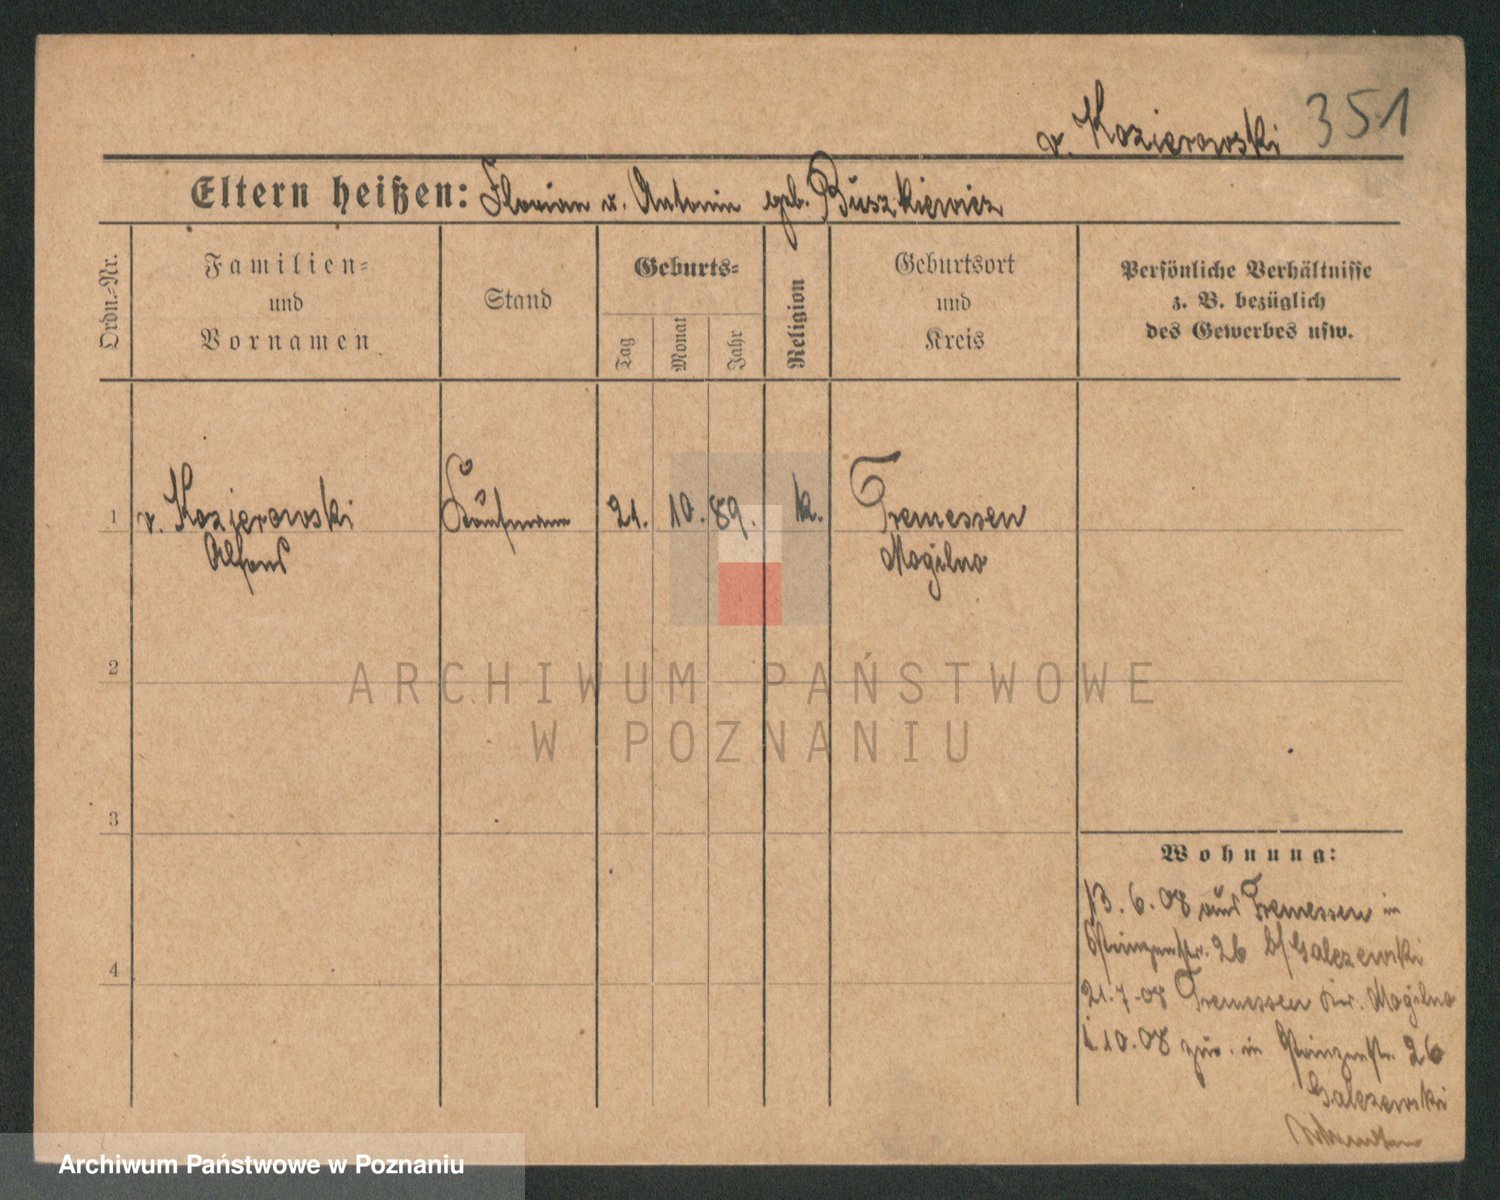 v. Kozierowski 351
Eltern heißen: Florian u. Antonin geb. Buszkiewicz
Ordn.-Nr.
Familien-
und
Vornamen
Stand
Geburts-
Tag
Monat
Jahr
Religion
Geburtsort
und
Kreis
Persönliche Verhältnisse
z. B. bezüglich
des Gewerbes usw.
1 v. Kozierowski Kaufmann 21. 10. 89. k. Tremessen
Alfons Mogilno
2
ARCHIWUM PAŃSTWOWE
W POZNANIU
3
Wohnung:
13. 6. 08 aus Tremessen in
Prinzenstr. 26 b/ Galczewski
4
21. 7. 08 Tremessen Kr. Mogilno
1. 10. 08 zur. in Prinzenstr. 26
Galczewski
Archiwum Państwowe w Poznaniu